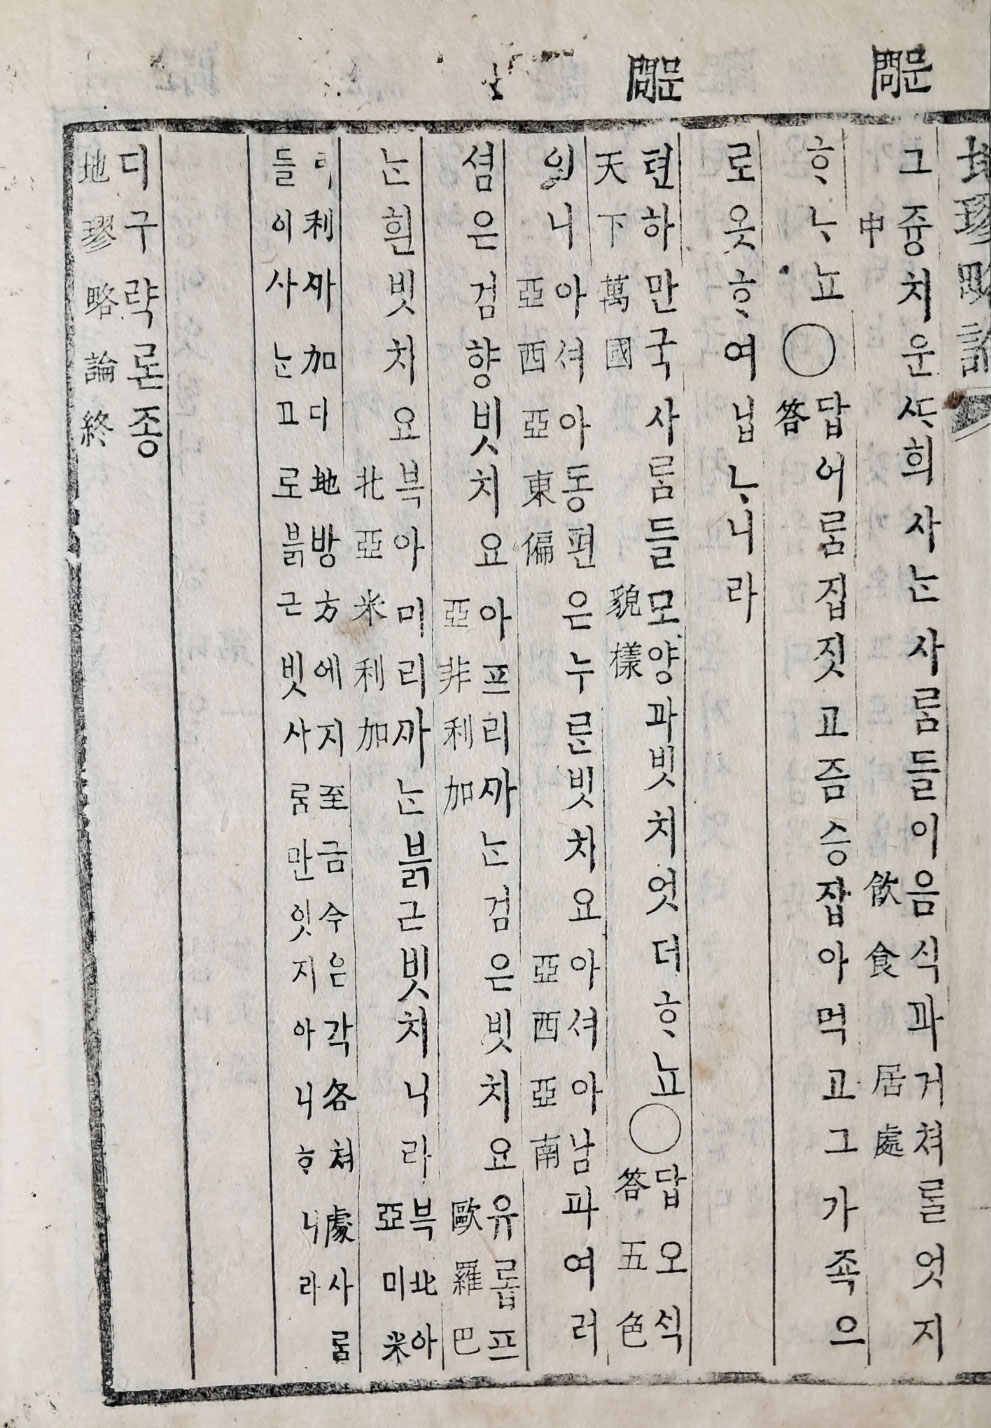 問문
問문
地璆略論
그즁치운ᄯᆞ희사ᄂᆞᆫ사ᄅᆞᆷ들이음식과거쳐ᄅᆞᆯ엇지
中 飮食 居處
ᄒᆞᄂᆞ뇨○답어ᄅᆞᆷ집짓고즘승잡아먹고그가족으
答
로옷ᄒᆞ여닙ᄂᆞ니라
텬하만국사ᄅᆞᆷ들모양과빗치엇더ᄒᆞ뇨○답오식
天下萬國 貌樣 答五色
니아셔아동편은누ᄅᆞᆫ빗치요아셔아남파여러
亞西亞東偏 亞西亞南
셤은검향빗치요아프리ᄭᅡᄂᆞᆫ검은빗치요유ᄅᆞᆸ프
亞非利加 歐羅巴
ᄂᆞᆫ흰빗치요북아미리ᄭᅡᄂᆞᆫ붉근빗치니라북北아
北亞米利加 亞미米
리利ᄭᅡ加디地방方에지至금수은각各쳐處사ᄅᆞᆷ
들이사ᄂᆞᆫ고로붉근빗사ᄅᆞᆷ만잇지아니ᄒᆞ니라
디구략론종
地璆略論終